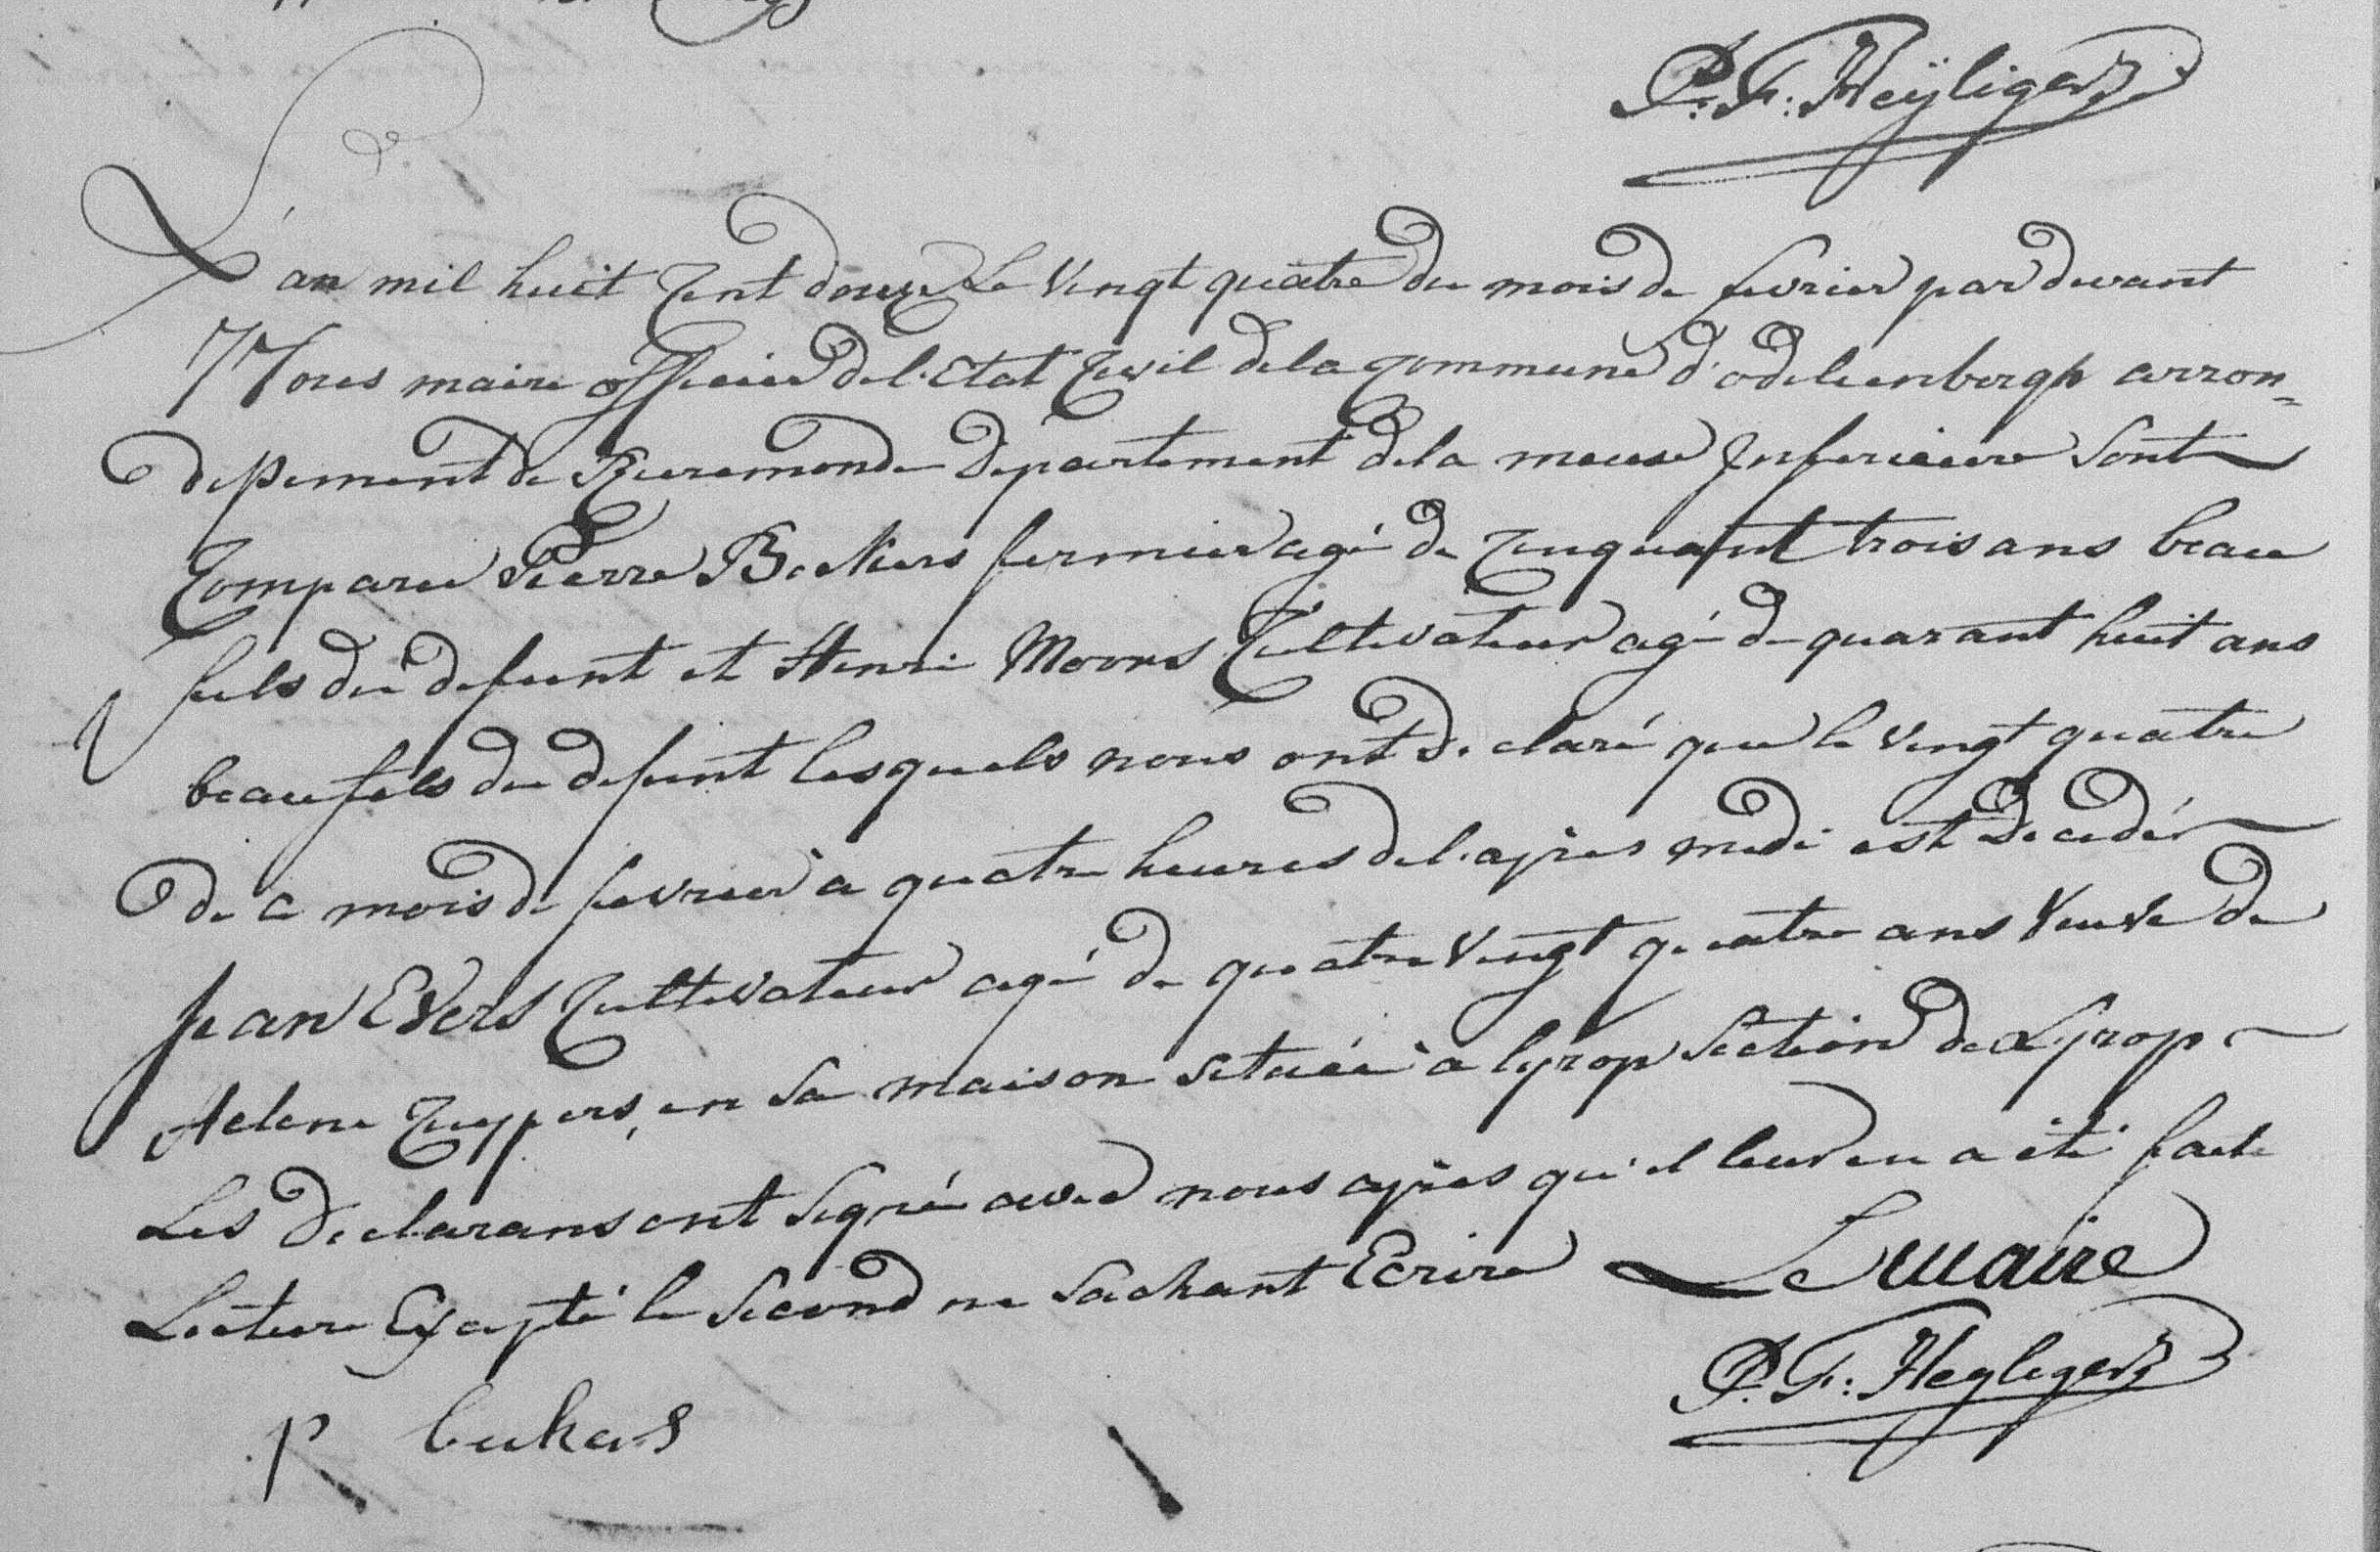 P. F. Heÿligers
L'an mil huit Cent douze Le Vingt quatre du mois de fevrier par devant
Nous maire officier de l'Etat Civil de la Commune d'odelienbergh arron=
dissement de Ruremonde Departement de la meuse Inferieure Sont
Comparu Pierre Beckers fermier agé de Cinquant trois ans beau
fils du defunt et Henri Moors Cultivateur agé de quarant huit ans
beaufils du defunt lesquels nous ont declaré que le vingt quatre
de ce mois de fevrier a quatre heures de l'apres midi est Decedé
Jean Evers Cultivateur agé de quatre Vingt quatre ans Veuve de
Helene Cuypers, en sa maison située a lyrop Section de Lyrop
Les Declarans ont signé avec nous apres qu'il leur en a été faite
Lecture Excepté le Second ne Sachant Ecrire Le maire
P. F. Heyligers
p beckers